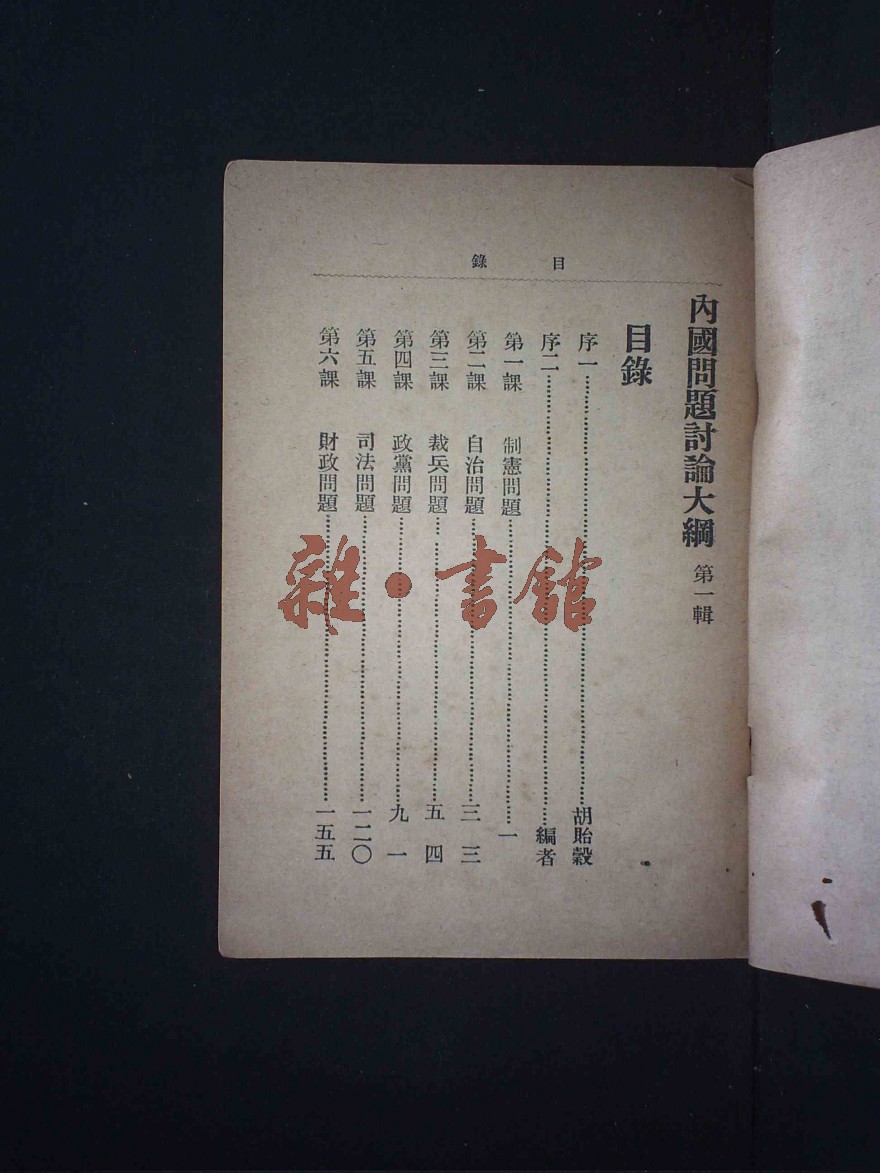 目錄
內國問題討論大綱 第一輯
目錄
序一……胡貽穀
序二……編者
第一課 制憲問題……一
第二課 自治問題……三三
第三課 裁兵問題……五四
第四課 政黨問題……九一
第五課 司法問題……一二〇
第六課 財政問題……一五五
雜·書館